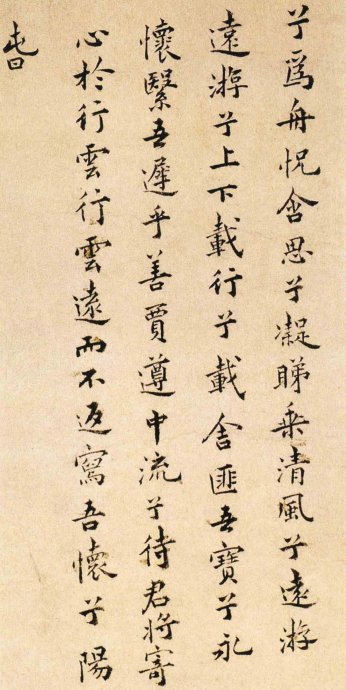 兮爲舟怳含思兮凝睇乘清風兮遠游
遠游兮上下載行兮載舍匪吾寶兮永
懷緊吾遲乎善賈遵中流兮待君將寄
心於行雲行雲遠而不返寫吾懷兮陽
春